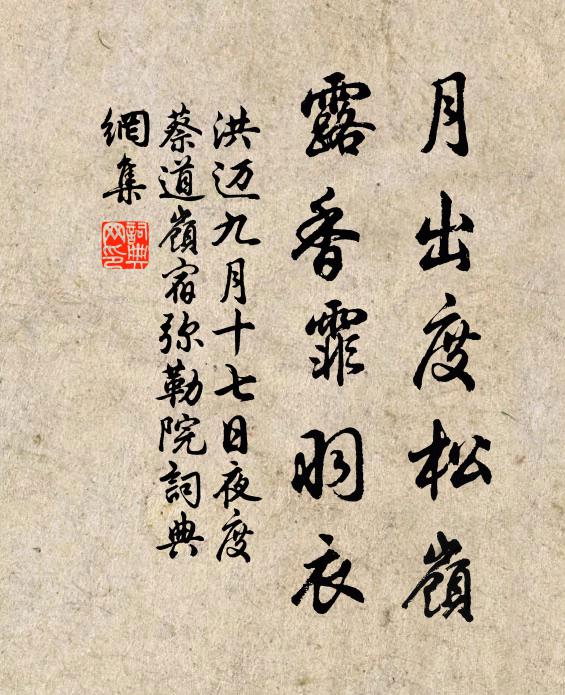 月出度松嶺
露香霏羽衣
洪迈九月十七日夜度
蔡道嶺宿弥勒院詞典
網集
詞典
网印